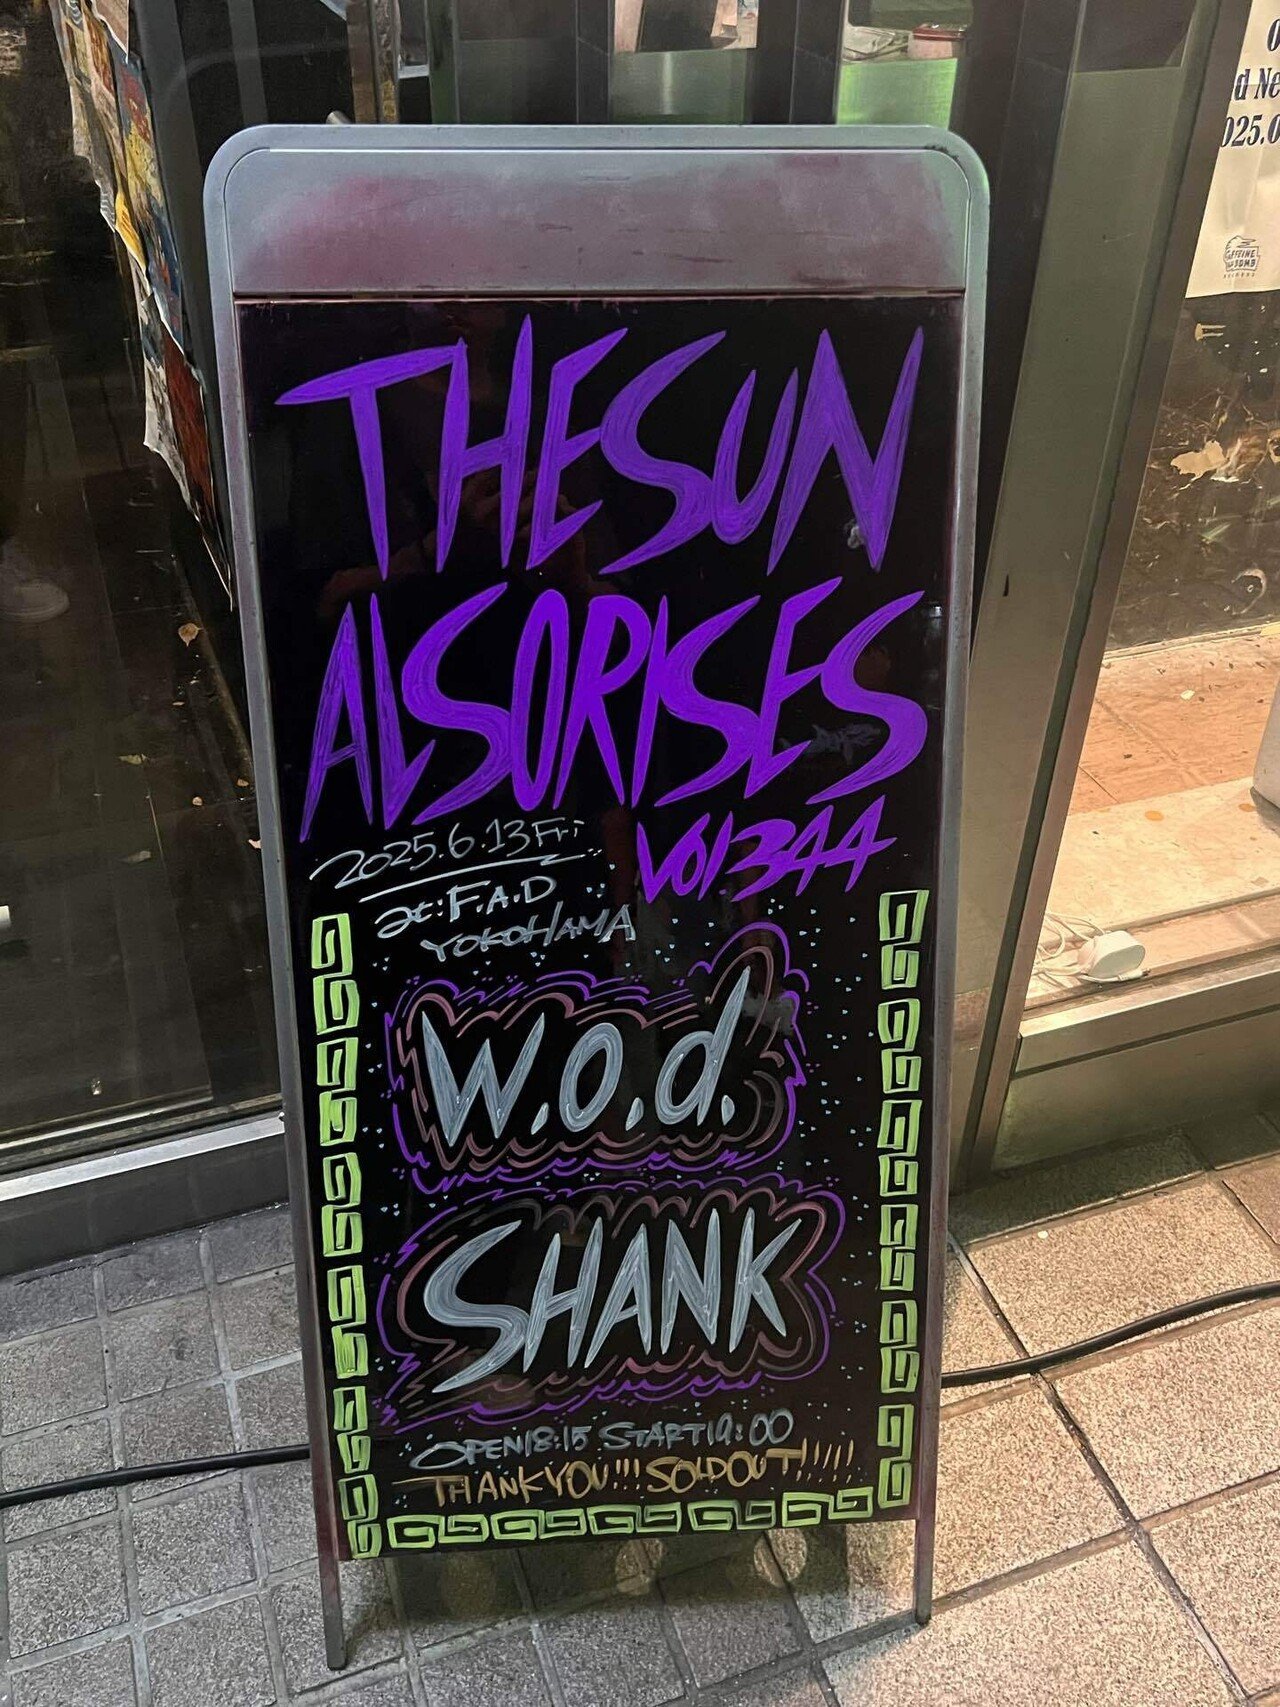 THE SUN
ALSO RISES
vol 344
2025.6.13 Fri
at: F.A.D
YOKOHAMA
W.o.d.
SHANK
OPEN 18:15 START 19:00
THANK YOU!!! SOLD OUT!!!!!
d Ne
025.0